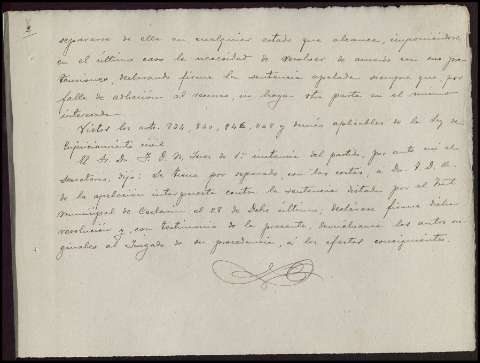 separarse de ella en cualquier estado que alcance, imponiéndose
en el último caso la necesidad de resolver de acuerdo con esa
declarando firme la sentencia apelada siempre que, por
falta de adhesión al recurso, no haya otra parte en el mismo
interesada.
Vistos los arts. 834, 840, 846, 848 y demás aplicables de la Ley de
Enjuiciamiento civil
El Sr. D. F. D. N. Juez de 1ª instancia del partido, por ante mí el
Secretario, dijo: Se tiene por separado, con las costas, a Dn. F. D. R.
de la apelación interpuesta contra la sentencia dictada por el Tral.
municipal de el 28 de último, declárase firme dicha
resolución y, con testimonio de la presente, devuélvanse los autos ori-
ginales al Juzgado de su procedencia, a los efectos consiguientes.